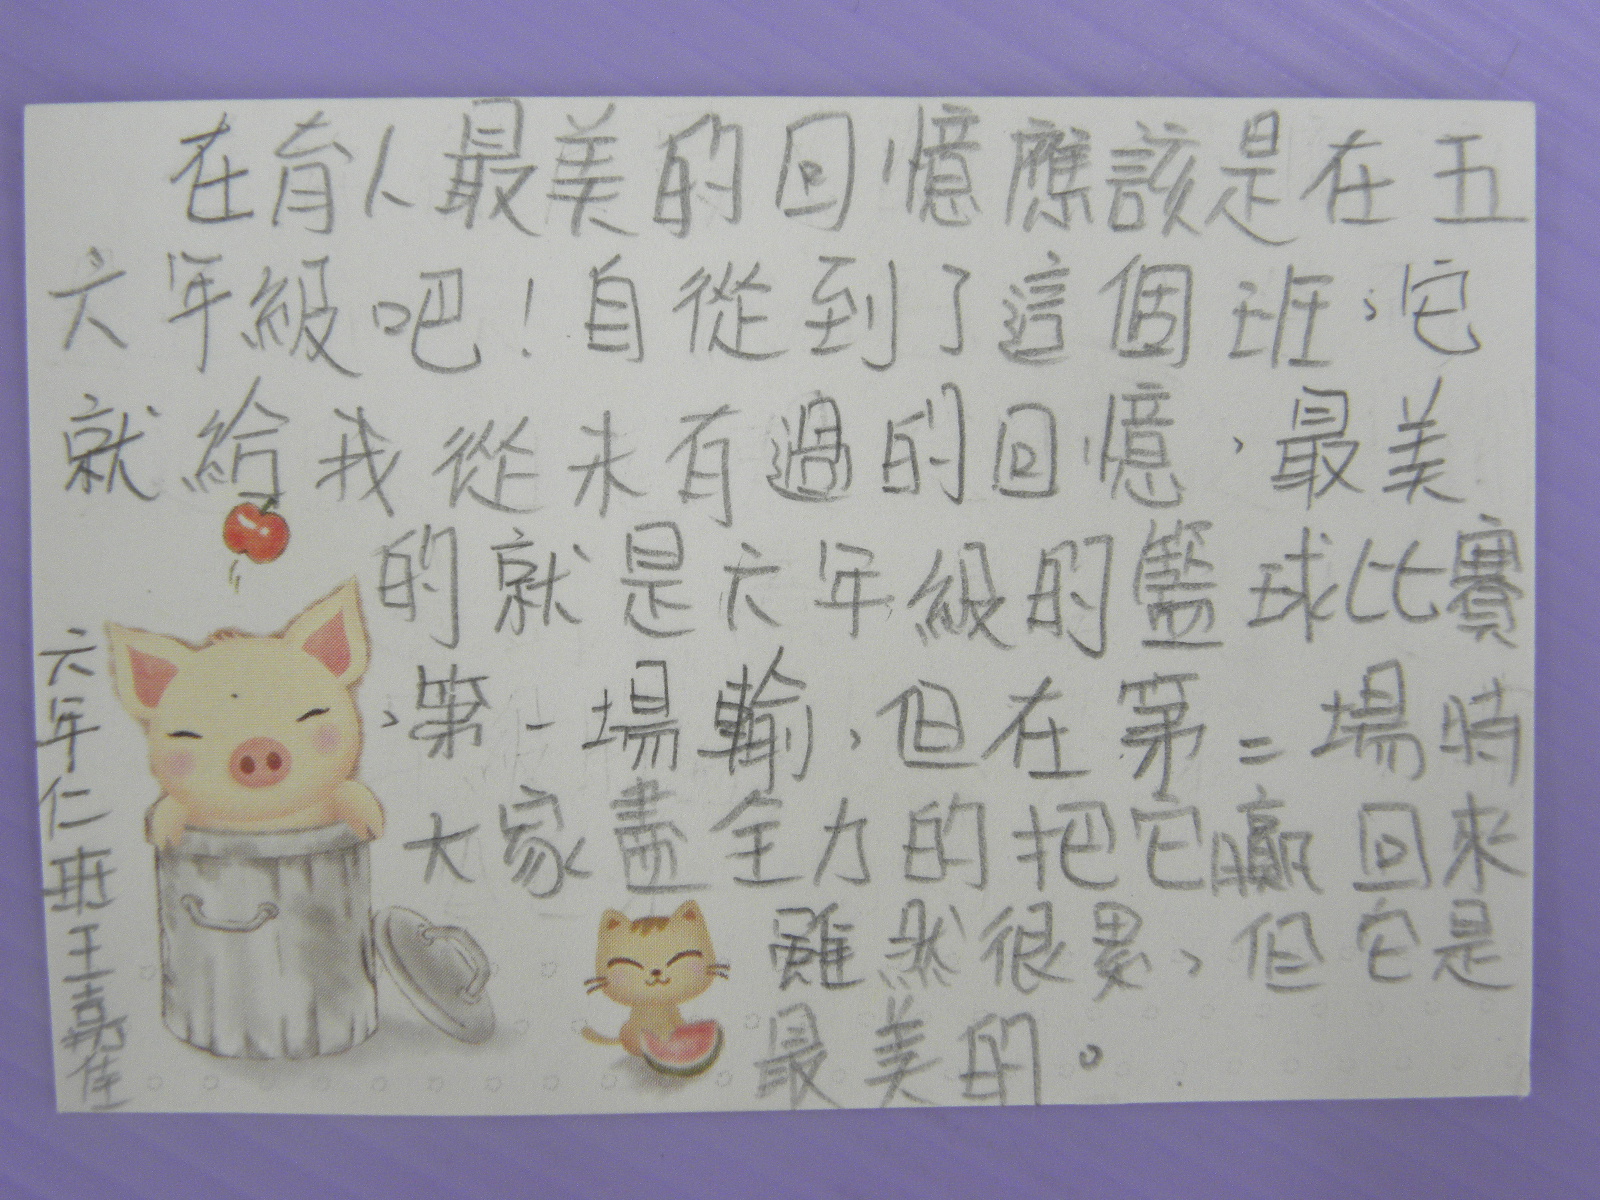 在育人最美的回憶應該是在五
六年級吧！自從到了這個班，它
就給我從未有過的回憶，最美
的就是六年級的籃球比賽
，第一場輸，但在第二場時
大家盡全力的把它贏回來
雖然很累，但它是
最美的。
六年仁班王嘉佳